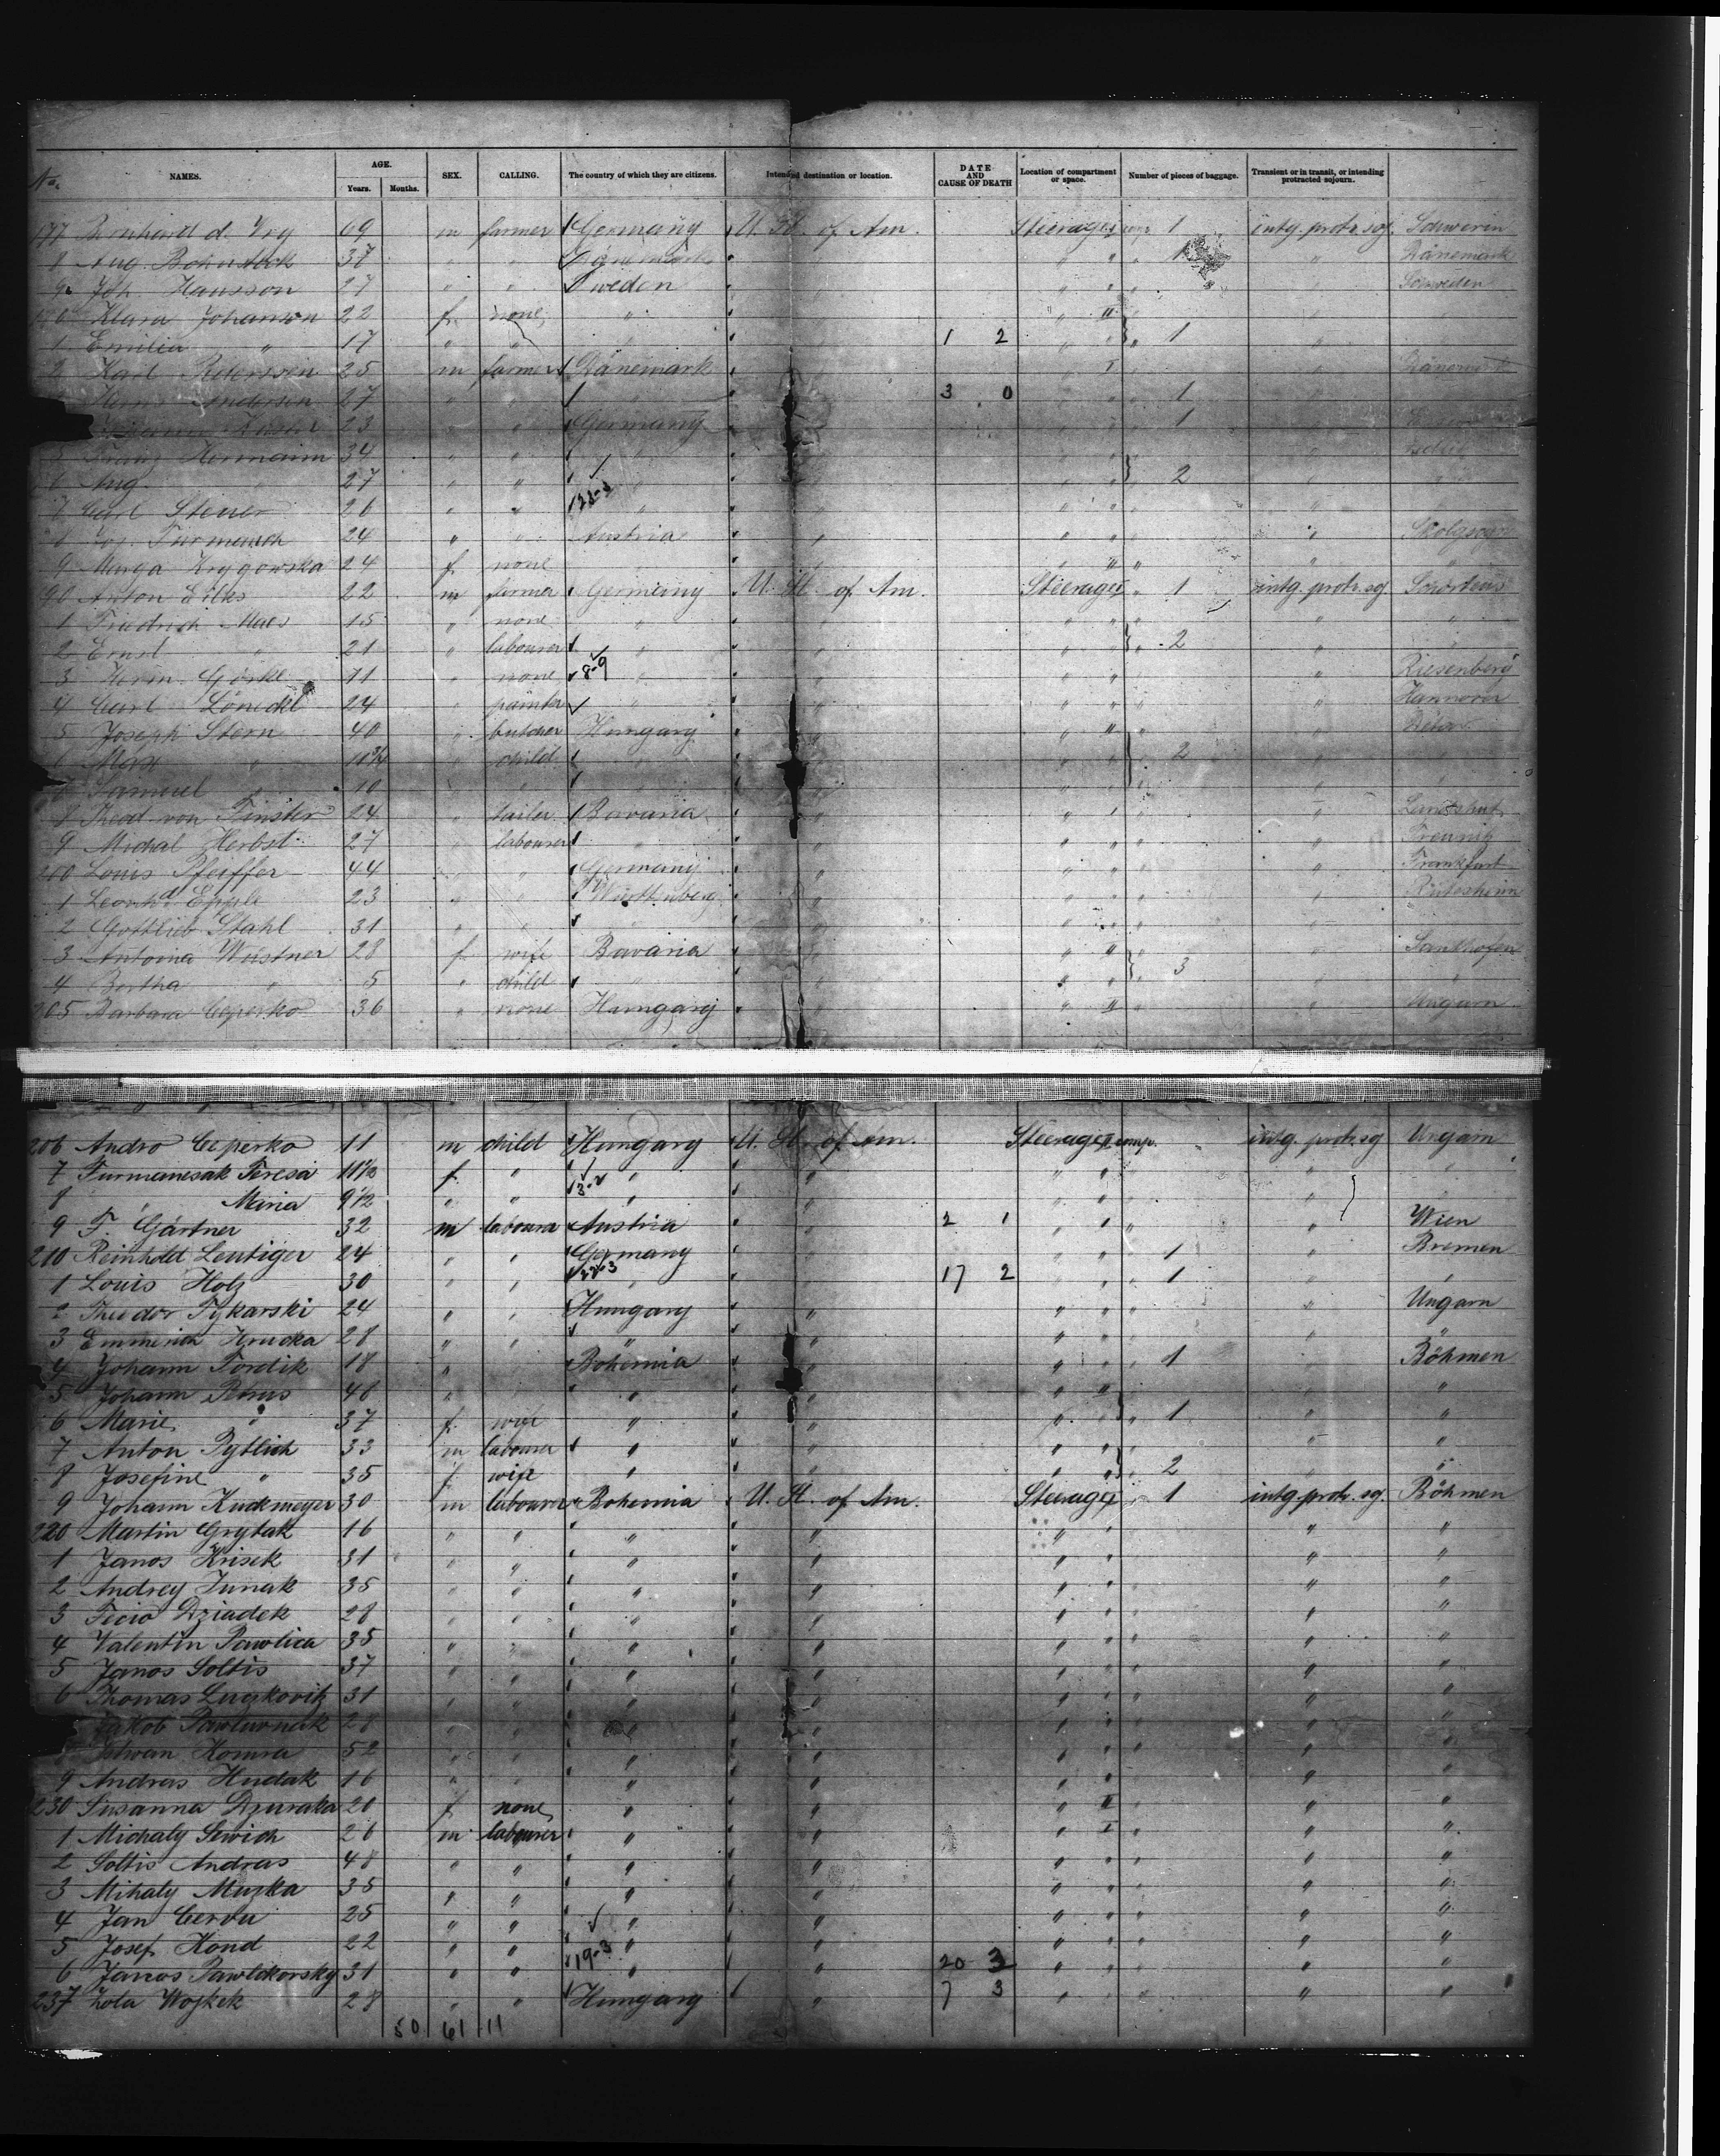 No. NAMES. AGE. Years. Months. SEX. CALLING. The country of which they are citizens. Intended destination or location. DATE AND CAUSE OF DEATH Location of compartment or space. Number of pieces of baggage. Transient or in transit, or intending protracted sojourn.
177 Bernhard d. Vry 69 m farmer Germany U. St. of Am. Steerage I comp. 1 intg. protr. soj. Schwerin
8 Aug. 37 " " Dänemark " " " " Dänemark
9 Joh. Hansson 27 " " Sweden " " " Schweden
Klara Johanson 22 f. none " " II "
1 Emilia " 17 " " " 1 2 " " " 1 "
2 Karl Pedersen 25 m farmer Dänemark " " I " Dänemark
Andersen 27 " " " 3 0 " " 1
23 " Germany " " 1
5 Franz Hermann 34 " " " "
6 Aug. " 27 " " " " 2
7 Carl Steuer 26 " " 123-3 " " " " "
8 24 " " Austria " " " "
9 Marya Krygowska 24 f. none " " II " "
90 Anton Eilks 22 m farmer Germany U. St. of Am. Steerage I " 1 intg. protr. sg. Schortens
1 Friedrich Maes 15 " none " " " " " "
2 Ernst " 21 " labourer " " " " 2 " "
3 Herm. Görke 71 " none 8-9 " " " " " Riesenberg
4 Carl 24 " painter " " " " Hannover
5 Joseph Stern 40 " butcher Hungary " " II "
6 Max " 11 3/4 " child " " " " 2 " "
7 Samuel " 10 " " " " " " "
8 Theod von Finster 24 " tailor Bavaria " " " " " Landshut
9 Michal Herbst 27 " labourer " " " " " "
200 Louis Pfeiffer 44 " " Germany " " " " " Frankfurt
1 Leonhd Epple 23 " " Württenberg " " " " " Rutesheim
2 Gottlieb Stahl 31 " " " " " " " "
3 Antonia Wüstner 28 f. wife Bavaria " " II " "
4 Bertha " 5 " child " " " " 3 " "
205 Barbara Ceperko 36 " none Hungary " " II " " Ungarn
206 Andro Ceperko 11 m child Hungary U. St. of Am. Steerage II comp. intg. protr. sg Ungarn
7 Furmanesak Teresa 11 1/2 f. " " " " " "
8 " Maria 9 1/2 " " " " " " " "
9 F. Gärtner 32 m labourer Austria " 2 1 " I " " Wien
210 Reinhold Leutiger 24 " " Germany " " " 1 " Bremen
1 Louis Holz 30 " " 22-3 " " 17 2 " " " 1 " "
2 Theodor Tykarski 24 " " Hungary " " " " " Ungarn
3 Emmerich Hrucka 28 " " " " " " " "
4 Johann Fordik 18 " Bohemia " " " " 1 " Böhmen
5 Johann 46 " " " " II " "
6 Marie " 37 f. wife " " " " " 1 " "
7 Anton Pytlich 33 m labourer " " " " " "
8 Josefine " 35 f. wife " " " " " 2 " "
9 Johann Kudkmeyer 30 m labourer Bohemia U. St. of Am. Steerage I " 1 intg. protr. sg. Böhmen
220 Martin Grytak 16 " " " " " " " "
1 Janos Krisek 31 " " " " " " " "
2 Andrey Junak 35 " " " " " " " " "
3 Fecio Dziadek 28 " " " " " " " " "
4 Valentin Pawlica 35 " " " " " " " " "
5 Janos Soltis 37 " " " " " " " " "
6 Thomas Lugkovitz 31 " " " " " " " " "
Jakob 28 " " " " " " " "
Istwan Komra 52 " " " " " " " " "
9 Andras Hudak 16 " " " " " " " "
230 Susanna Dzuraka 20 f. none " " " II " " "
1 Michaly Sewich 26 m labourer " " " I " " "
2 Soltis Andras 48 " " " " " " " " "
3 Mihaly Muzka 35 " " " " " " " " "
4 Jan 25 " " " " " " " " "
5 Josef Hond 22 " " " " " " " " "
6 Janos Pawlckorsky 31 " " 19-3 " " 20 3 " " " " "
237 Wojkek 28 " " Hungary " 7 3 " " " " "
50 61 11